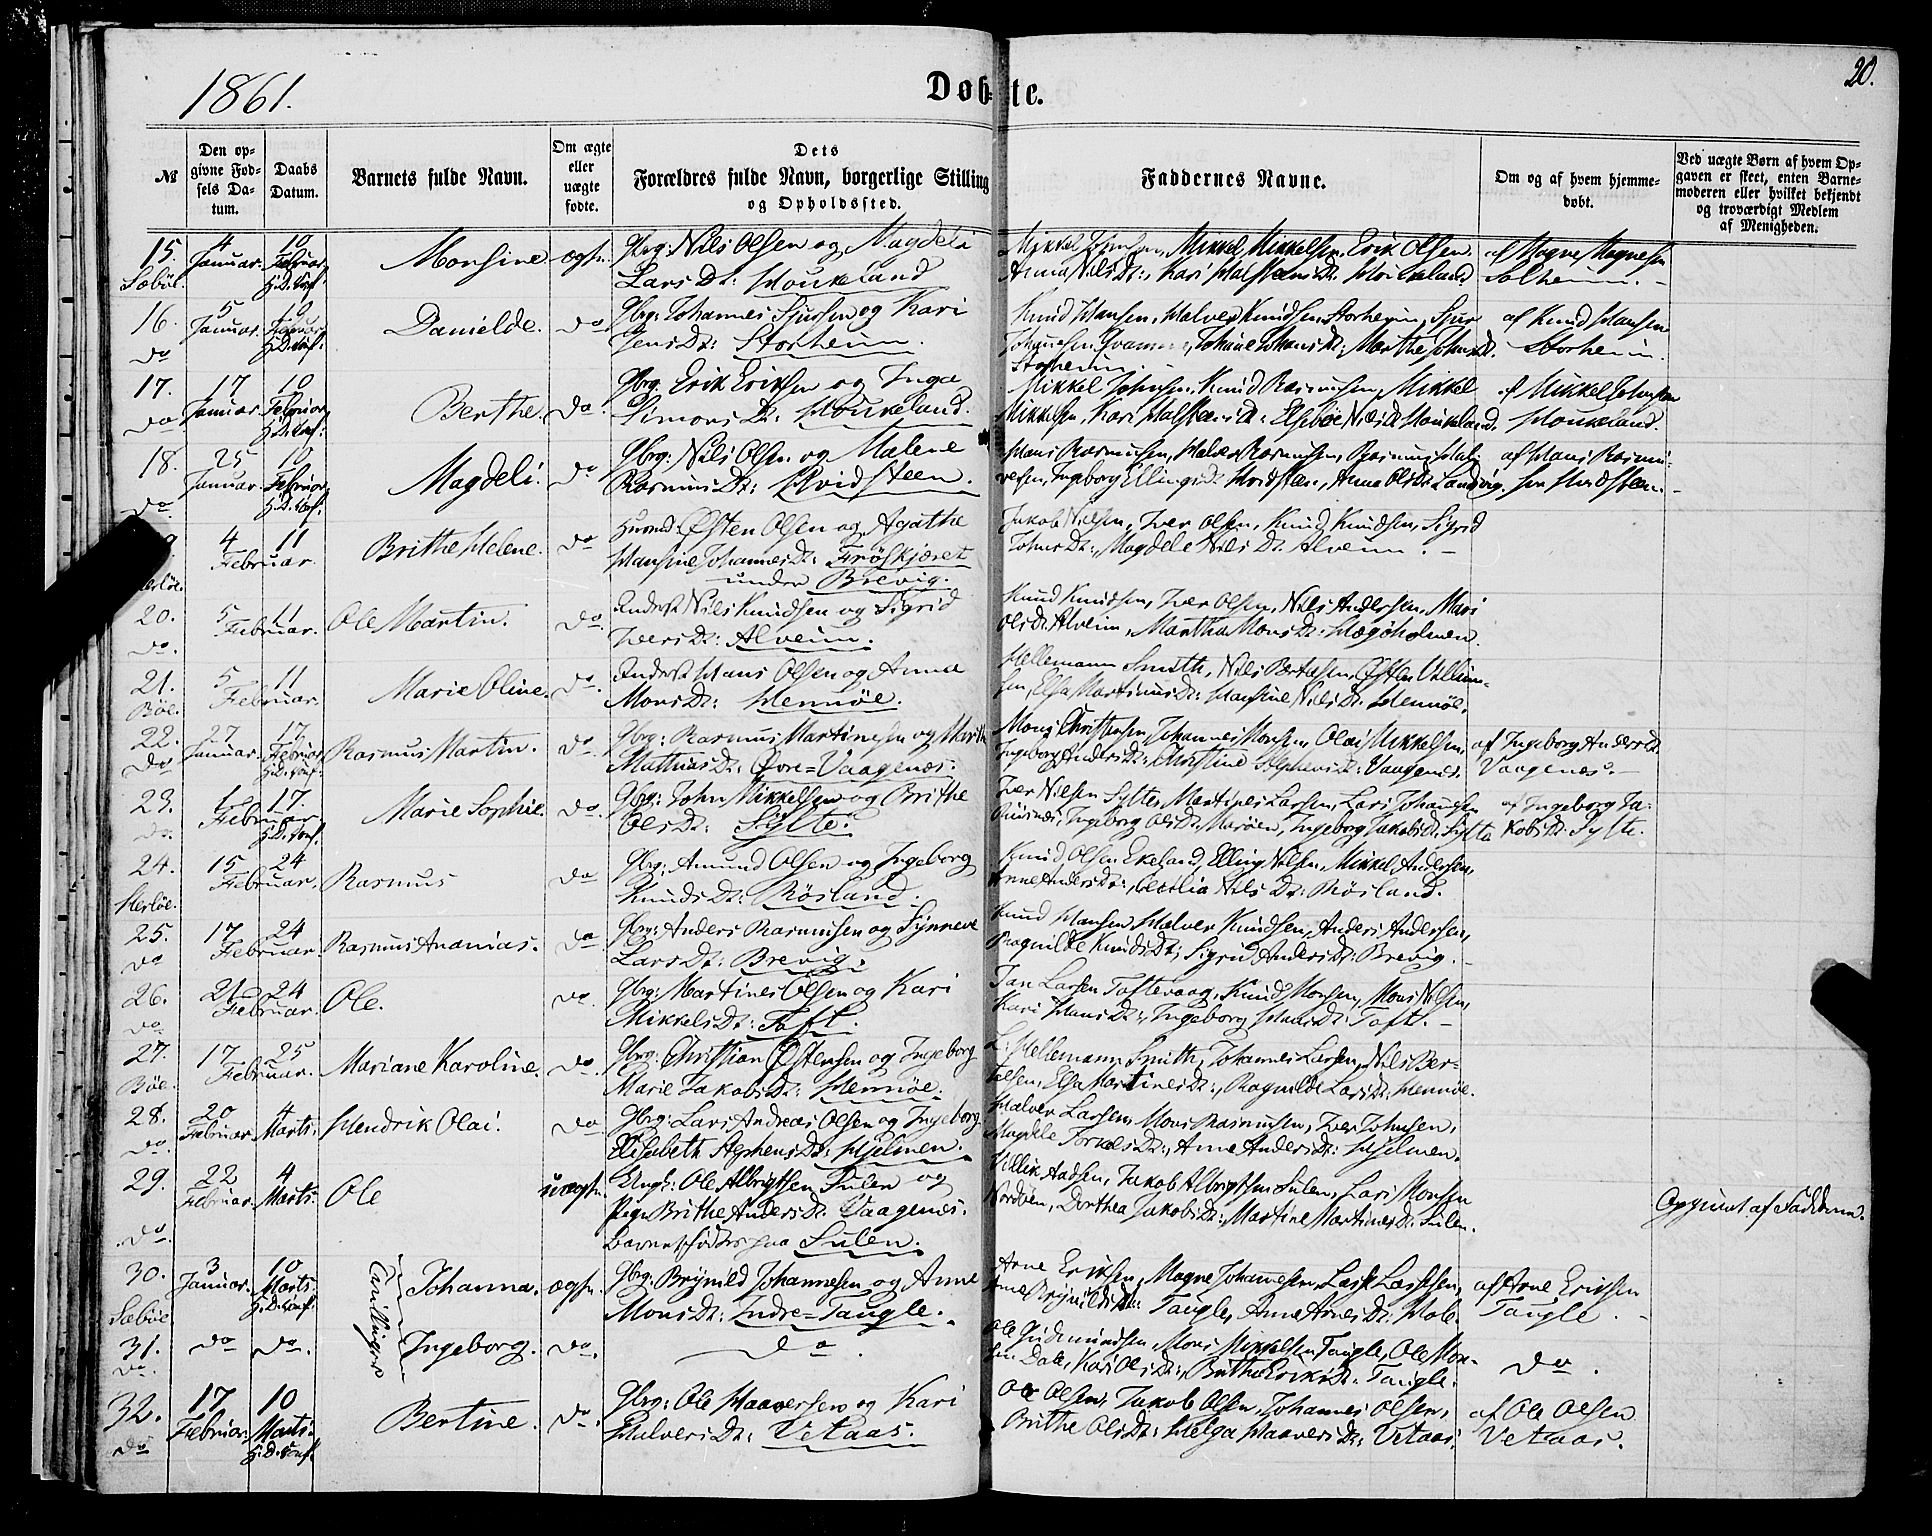 1861.
Døbte.
20.
№
Den opgivne Fødsels Datum.
Daabs Datum.
Barnets fulde Navn.
Om ægte eller uægte fødte.
Dets Forældres fulde Navn, borgerlige Stilling og Opholdssted.
Faddernes Navne.
Om og af hvem hjemmedøbt.
Ved uægte Børn af hvem Opgaven er skeet, enten Barnemoderen eller hvilket bekjendt og troværdigt Medlem af Menigheden.
15. Sæböe. 4 Januar. 10 Februar. Monsine ægte.
Gbrg: Nils Olsen og Magdeli
Lars Dt: Houkeland
Mikkel Johnsen, Mikkel Mikkelsen, Erik Olsen.
Anna Nils Dt:, Kari Halsteens Dt: Houkeland
af Magne Magnesen
Solheim.
16. do 5 Januar. 10 Februar Danielde. do
Gbrg: Johannes Sjursen og Kari
Jens Dt: Storheim.
Knud Hansen, Halver Knudsen Storheim, Sjur
Johannesen, Johanne Johans Dt:, Marthe Johns Dt.
Storheim.
af Knud Hansen
Storheim.
17. do 17 Januar. 10 Februar Berthe. do.
Gbrg: Erik Eriksen og Inga
Simons Dt: Houkeland.
Mikkel Johnsen, Knud Rasmussen, Mikkel
Mikkelsen, Kari Halsteens Dt:, Elseboe Nils Dt Houkeland.
af Mikkel Johnsen
Houkeland.
18. do 25 Januar. 10 Februar Magdeli. do
Gbrg: Nils Olsen og Malene
Rasmus Dt: Hvidsteen.
Hans Rasmussen, Halver Rasmussen, Rasmus Halversen, Ingeborg Ellings Dt: Hvidsteen, Anna Ols Dt: Landvig.
af Hans Rasmussen Hvidsteen.
4 Februar 11 Brithe Helene. do
Huusmd. Østen Olsen og Agathe
Hansine Johannes Dt: Frøskjæret
under Brevig.
Jakob Nielsen, Iver Olsen, Knud Knudsen, Sigrid
Johns Dt:, Magdele Nils Dt. Alveim.
20. do. 5 Februar. 11 Ole Martin. do.
Inderst Nils Knudsen og Sigrid
Ivers Dt: Alveim.
Knud Knudsen, Iver Olsen, Nils Andersen, Mari
Ols Dt. Alveim, Martha Mons Dt:
21. Böe. 5 Februar 11 Marie Oline. do.
Inderst Hans Olsen og Anna
Mons Dt: Hennöe.
Hellemann Smith, Nils Bertelsen, Østen Villumsen, Elsa Martinus Dt:, Hansine Nils Dt. Hennöe.
22. do 27 Januar. 17 Februar Rasmus Martin. do
Gbrg: Rasmus Martinesen og Marthe
Mathias Dt: Øvre=Vaagenæs.
Mons Christensen, Johannes Monsen, Olai Mikkelsen,
Ingeborg Anders Dt:, Christine Stephens Dt: Vaagenæs.
af Ingeborg Anders Dt.
Vaagenæs.
23. do. Februar 17. Marie Sophie. do.
Gbrg: John Mikkelsen og Brithe
Ols Dt: Sylte.
Iver Nilsen Sylte, Martines Larsen, Lars Johannesen
Ingeborg Ols Dt:, Ingeborg Jakobs Dt: Sylte
af Ingeborg Jakobs Dt: Sylte.
24. Herlöe. 15 Februar. 24 Rasmus do
Gbrg: Amund Olsen og Ingeborg
Knuds Dt: Røsland.
Knud Olsen Ekeland, Elling Nilsen, Mikkel Andersen,
Anne Anders Dt:, Cecilia Nils Dt: Røsland.
25. do 17 Februar. 24 Rasmus Ananias. do
Gbrg: Anders Rasmussen og Synneve
Lars Dt: Brevig.
Knud Hansen, Halver Knudsen, Anders Andersen,
Ragnilde Knuds Dt:, Sigrid Anders Dt: Brevig.
26. do 21 Februar. 24 Ole. do.
Gbrg: Martines Olsen og Kari
Mikkels Dt: Toft.
Jan Larsen Toftevaag, Knud Monsen, Mons Nilsen,
Kari Hans Dt:, Ingeborg Hans Dt: Toft.
27. Böe. 17 Februar. 25 Mariane Karoline. do.
Gbrg: Christian Østensen og Ingeborg
Marie Jakobs Dt: Hennöe.
L. Hellemann Smith, Johannes Larsen, Nils Bertelsen, Elsa Martines Dt:, Ragnilde Lars Dt: Hennöe.
28. do. 20 Februar 4 Marts. Hendrik Olai. do
Gbrg: Lars Andreas Olsen og Ingeborg
Elisabeth Stephens Dt: Hjelmen.
Halver Larsen, Mons Rasmussen, Iver Johnsen,
Magdele Torkels Dt:, Anne Anders Dt: Hjelmen.
29. do. 22 Februar. 4 Marts. Ole uægte.
Ungk: Ole Albrigtsen Sulen og
Pige Brithe Anders Dt: Vaagenæs.
Barnet födt paa Sulen.
Jakob Albrigtsen Sulen, Lars Monsen
Nordöen, Dorthea Jakobs Dt:, Martine Martines Dt: Sulen.
Opgivet af Fadderne.
30. Sæböe. 3 Januar. 10 Marts Tvillinger Johanna. ægte.
Gbrg: Brynild Johannesen og Anne
Mons Dt: Indre=Tangle.
Arne Eriksen, Magne Johannesen, Lasse Lassesen,
Anne Brynilds Dt: Tangle, Anne Arnes Dt:
af Arne Eriksen
Tangle.
31. do. do do. Ingeborg. do.
do
Ole Gudmundsen, Mons Mikkelsen Tangle, Ole Monsen Dale, Kari Ols Dt:, Brithe Eriks Dt. Tangle.
do.
32. do 17 Februar. 10 Marts Bertine. do.
Gbrg: Ole Haaversen og Kari
Halvers Dt: Vetaas.
Ole Olsen, Jakob Olsen, Johannes Olsen,
Brithe Ols Dt:, Helga Haavers Dt: Vetaas.
af Ole Olsen
Vetaas.